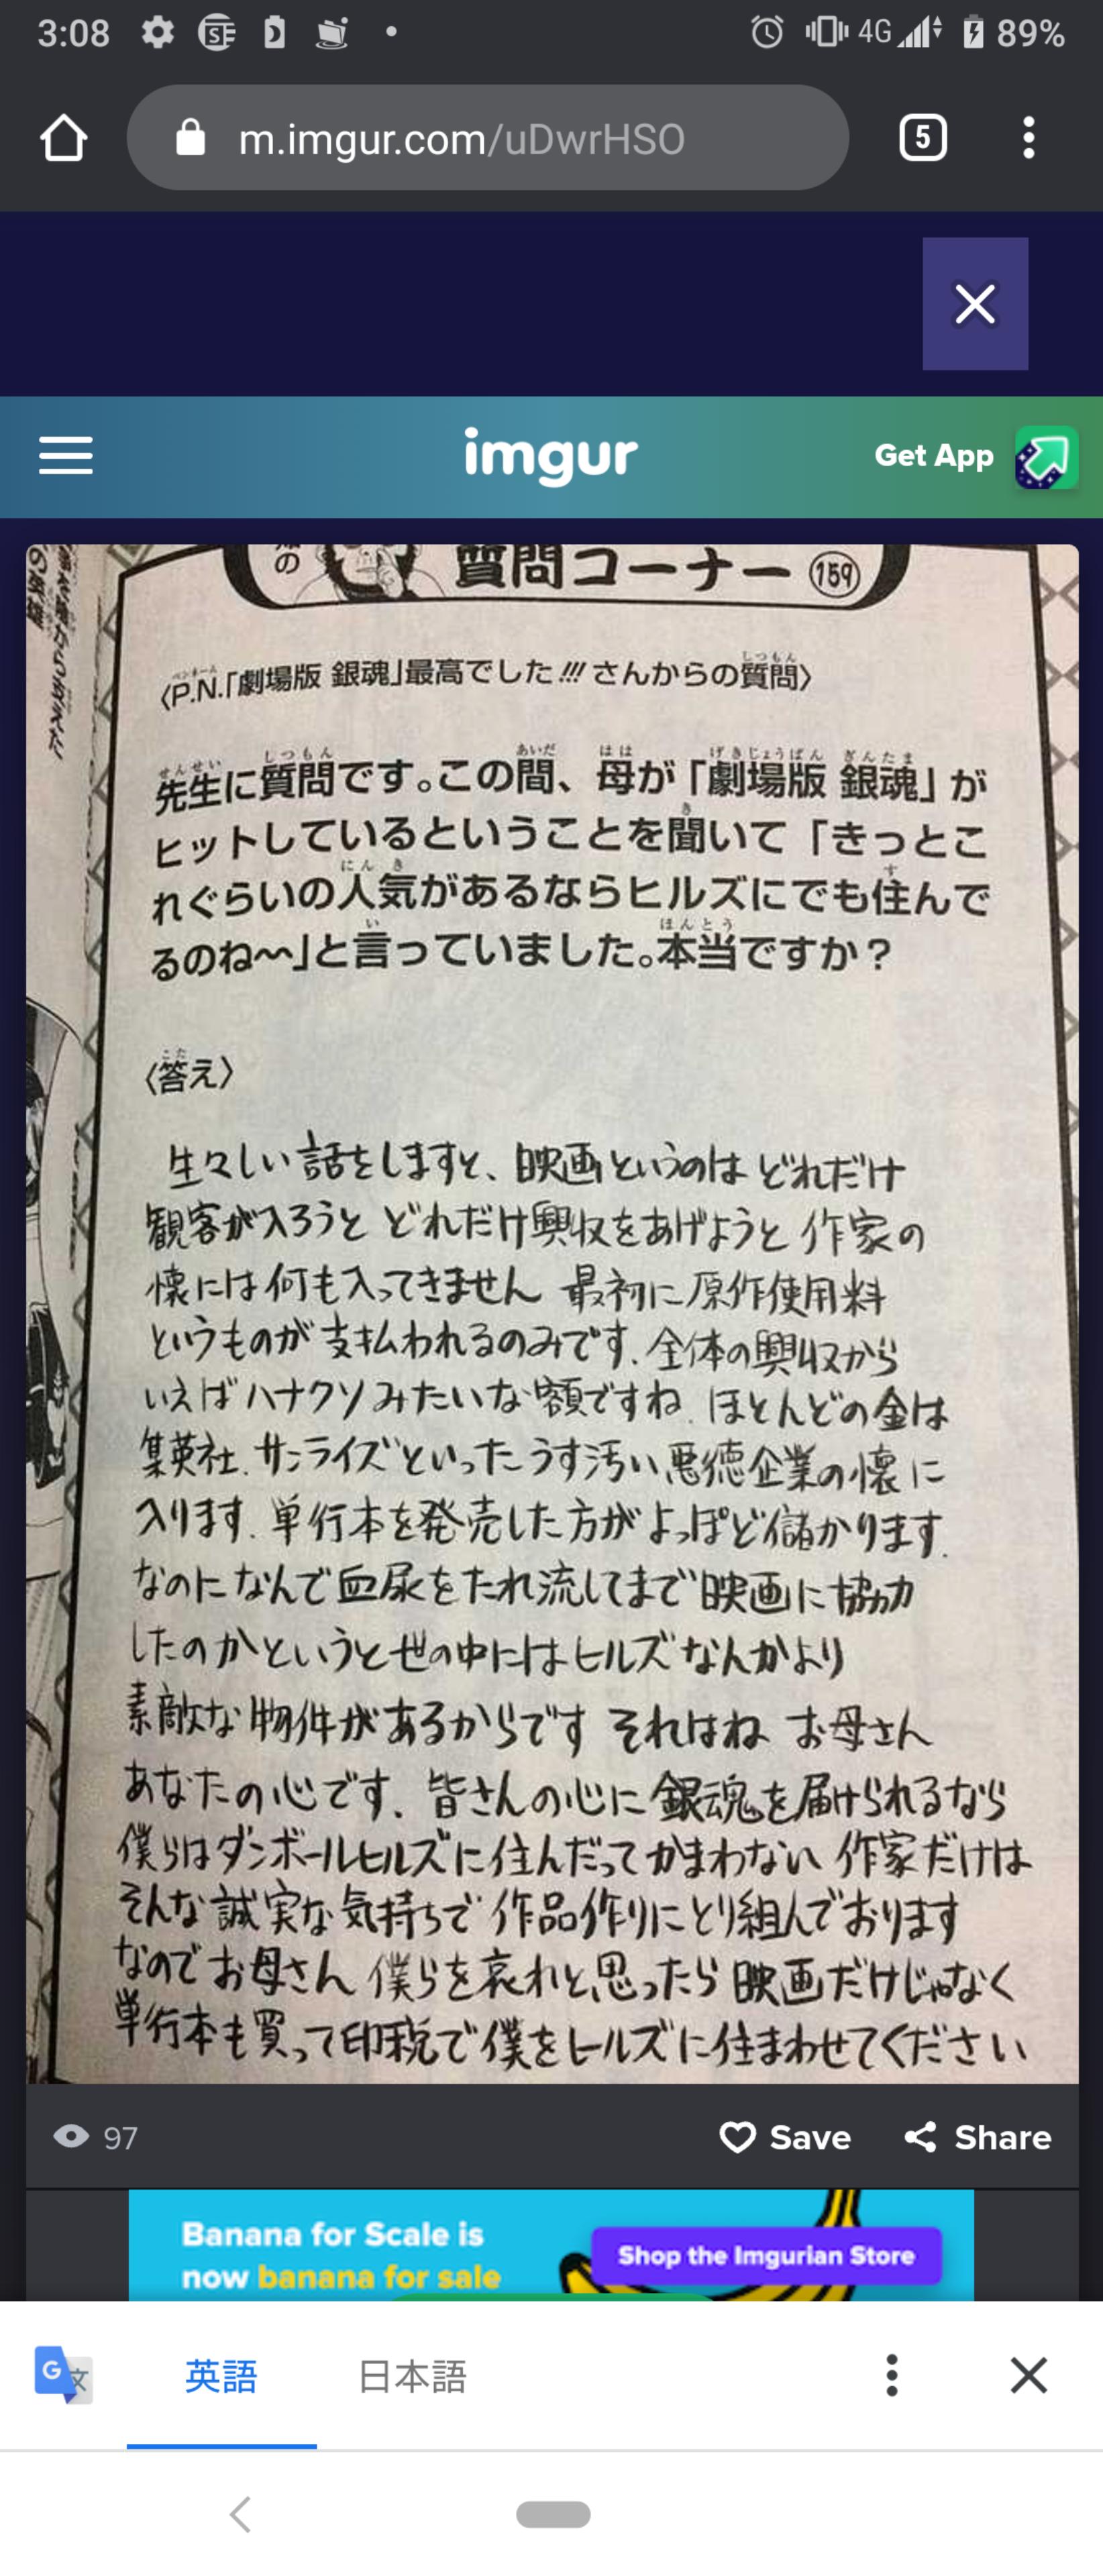 3:08
4G
89%
m.imgur.com/uDwrHSO
5
imgur
Get App
の
質問コーナー 159
〈P.N.「劇場版 銀魂」最高でした!!! さんからの質問〉
先生に質問です。この間、母が「劇場版 銀魂」が
ヒットしているということを聞いて「きっとこ
れぐらいの人気があるならヒルズにでも住んで
るのね〜」と言っていました。本当ですか？
〈答え〉
生々しい話をしますと、映画というのは どれだけ
観客が入ろうと どれだけ興収をあげようと 作家の
懐には何も入ってきません 最初に原作使用料
というものが支払われるのみです、全体の興収から
いえばハナクソみたいな額ですね、ほとんどの金は
集英社、サンライズといったうす汚い悪徳企業の懐に
入ります、単行本を発売した方がよっぽど儲かります、
なのになんで血尿をたれ流してまで映画に協力
したのかというと世の中にはヒルズなんかより
素敵な物件があるからです それはね お母さん
あなたの心です、皆さんの心に銀魂を届けられるなら
僕らはダンボールヒルズに住んだってかまわない 作家だけは
そんな誠実な気持ちで作品作りにとり組んでおります
なのでお母さん 僕らを哀れと思ったら映画だけじゃなく
単行本も買って印税で僕をヒルズに住まわせてください
97
Save
Share
Banana for Scale is
now banana for sale
Shop the Imgurian Store
英語
日本語